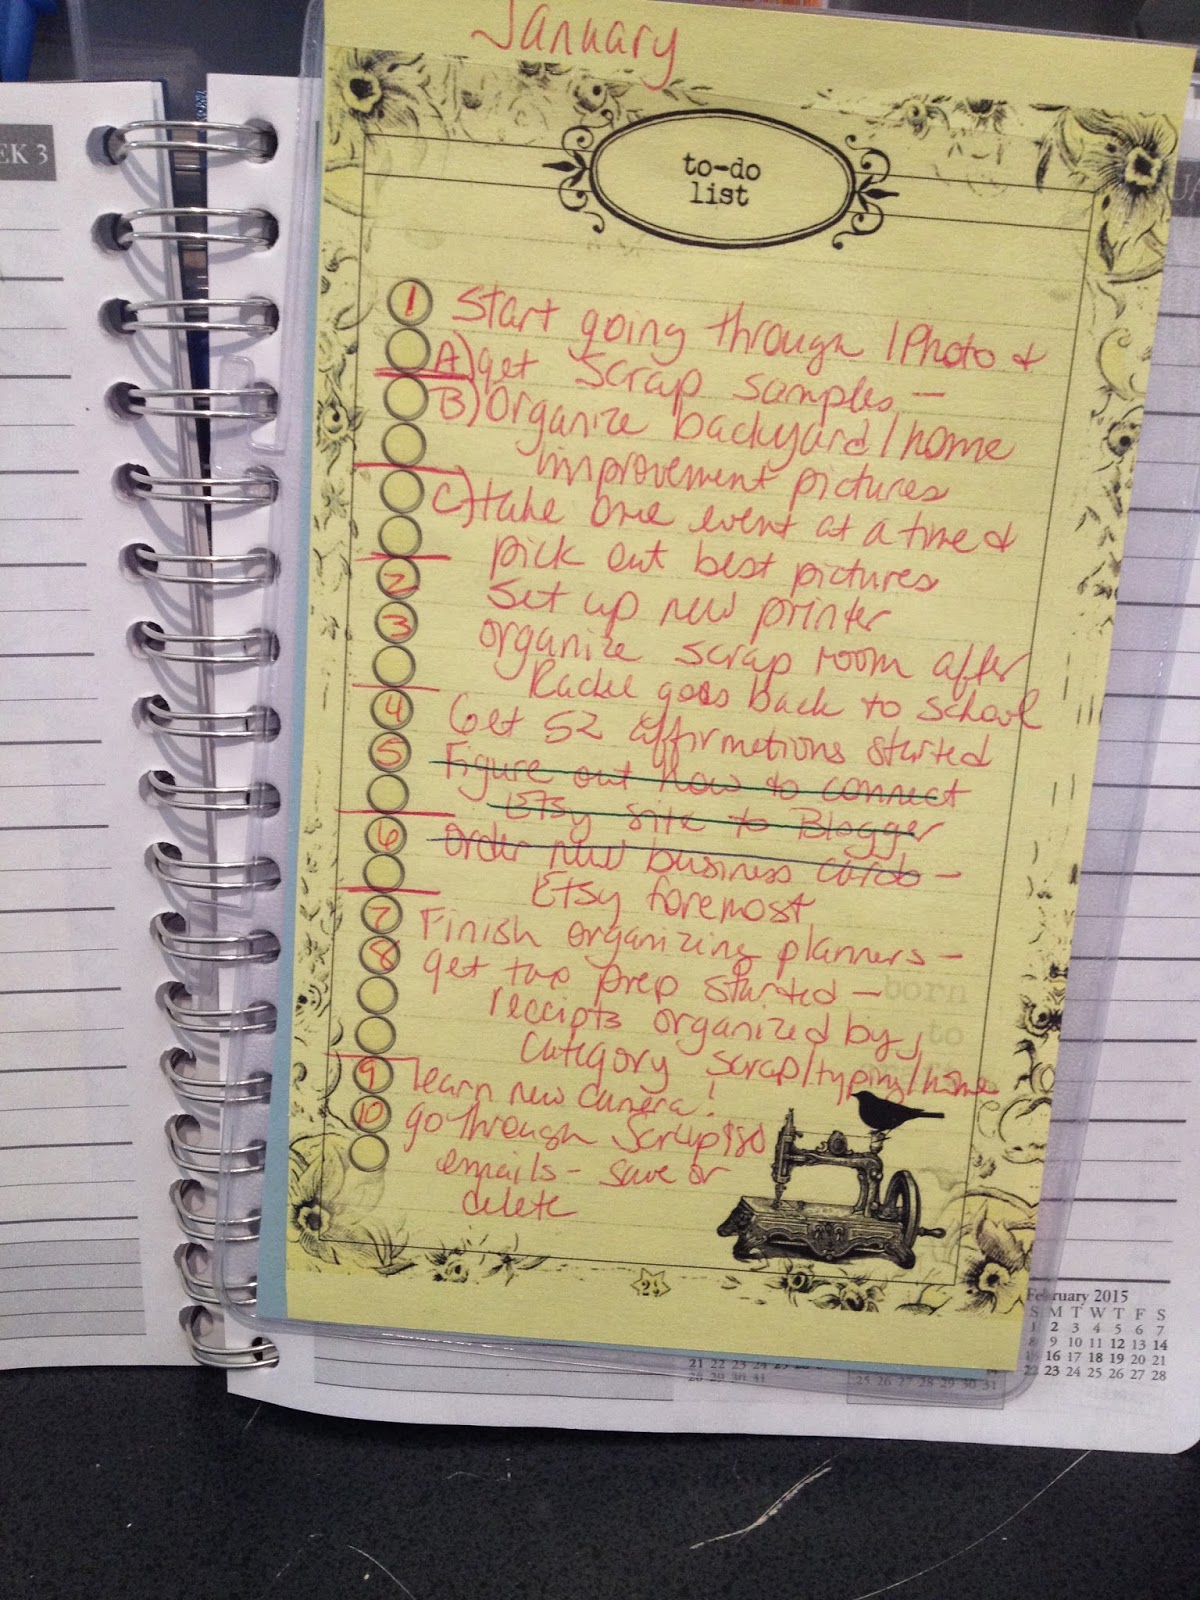 January
EK 3
to-do
list
1 Start going through iPhoto &
A) get scrap samples -
B) Organize backyard/home
improvement pictures
C) take one event at a time &
pick out best pictures
2 Set up new printer
3 organize scrap room after
goes back to school
4 Get 52 affirmations started
5 Figure out how to connect
Etsy site to Blogger
6 Order new business cards -
Etsy foremost
7 Finish organizing planners -
8 get tax prep started -
receipts organized by
category scrap/typing/home
born
to
9 learn new camera!
10 go through
emails - save or
delete
February 2015
S M T W T F S
1 2 3 4 5 6 7
8 9 10 11 12 13 14
15 16 17 18 19 20 21
22 23 24 25 26 27 28
21 22 23 24 25 26
28 29 30 31
25 26 27 28 29 30 31